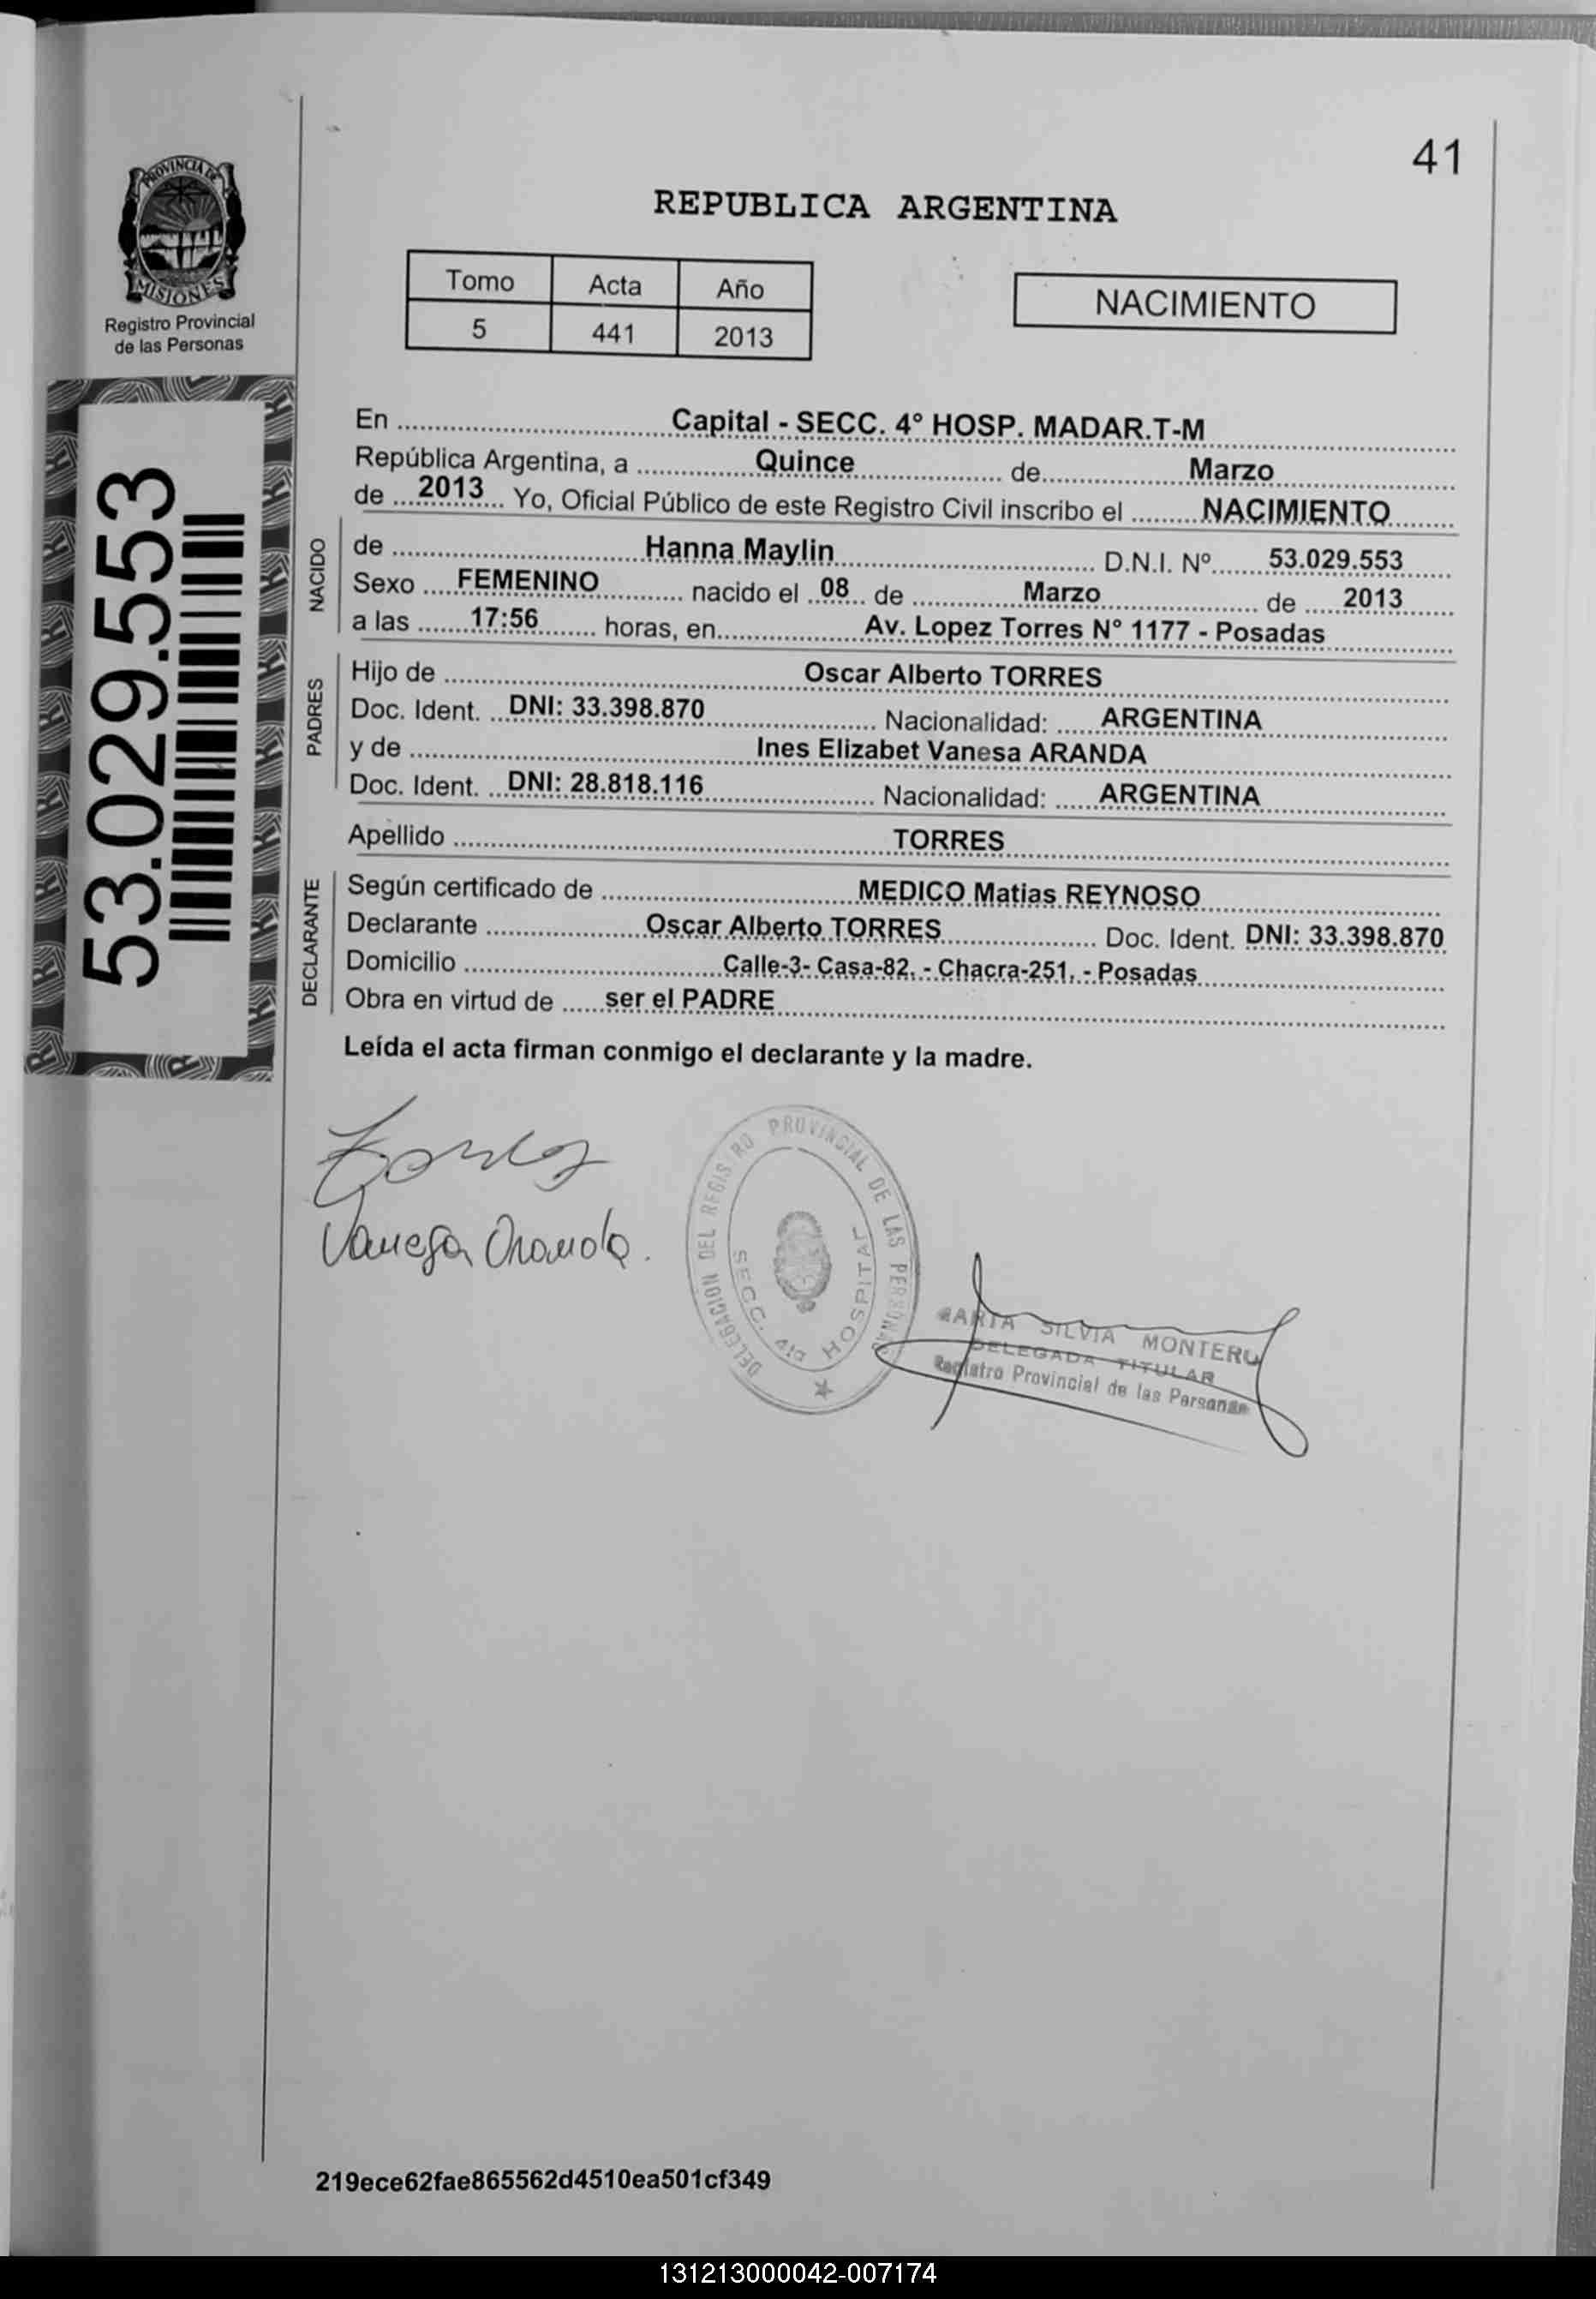 41
PROVINCIA DE
MISIONES
Registro Provincial
de las Personas
REPUBLICA ARGENTINA
Tomo Acta Año
5 441 2013
NACIMIENTO
53.029.553
En Capital - SECC. 4º HOSP. MADAR.T-M
República Argentina, a Quince de Marzo
de 2013 Yo, Oficial Público de este Registro Civil inscribo el NACIMIENTO
NACIDO
de Hanna Maylin D.N.I. Nº 53.029.553
Sexo FEMENINO nacido el 08 de Marzo de 2013
a las 17:56 horas, en Av. Lopez Torres N° 1177 - Posadas
PADRES
Hijo de Oscar Alberto TORRES
Doc. Ident. DNI: 33.398.870 Nacionalidad: ARGENTINA
y de Ines Elizabet Vanesa ARANDA
Doc. Ident. DNI: 28.818.116 Nacionalidad: ARGENTINA
Apellido TORRES
DECLARANTE
Según certificado de MEDICO Matias REYNOSO
Declarante Oscar Alberto TORRES Doc. Ident. DNI: 33.398.870
Domicilio Calle-3- Casa-82, - Chacra-251, - Posadas
Obra en virtud de ser el PADRE
Leída el acta firman conmigo el declarante y la madre.
Vanesa Aranda.
DELEGACION DEL REGISTRO PROVINCIAL DE LAS PERSONAS
SECC. 4ta HOSPITAL
SILVIA MONTERO
DELEGADA TITULAR
Registro Provincial de las Personas
219ece62fae865562d4510ea501cf349
131213000042-007174